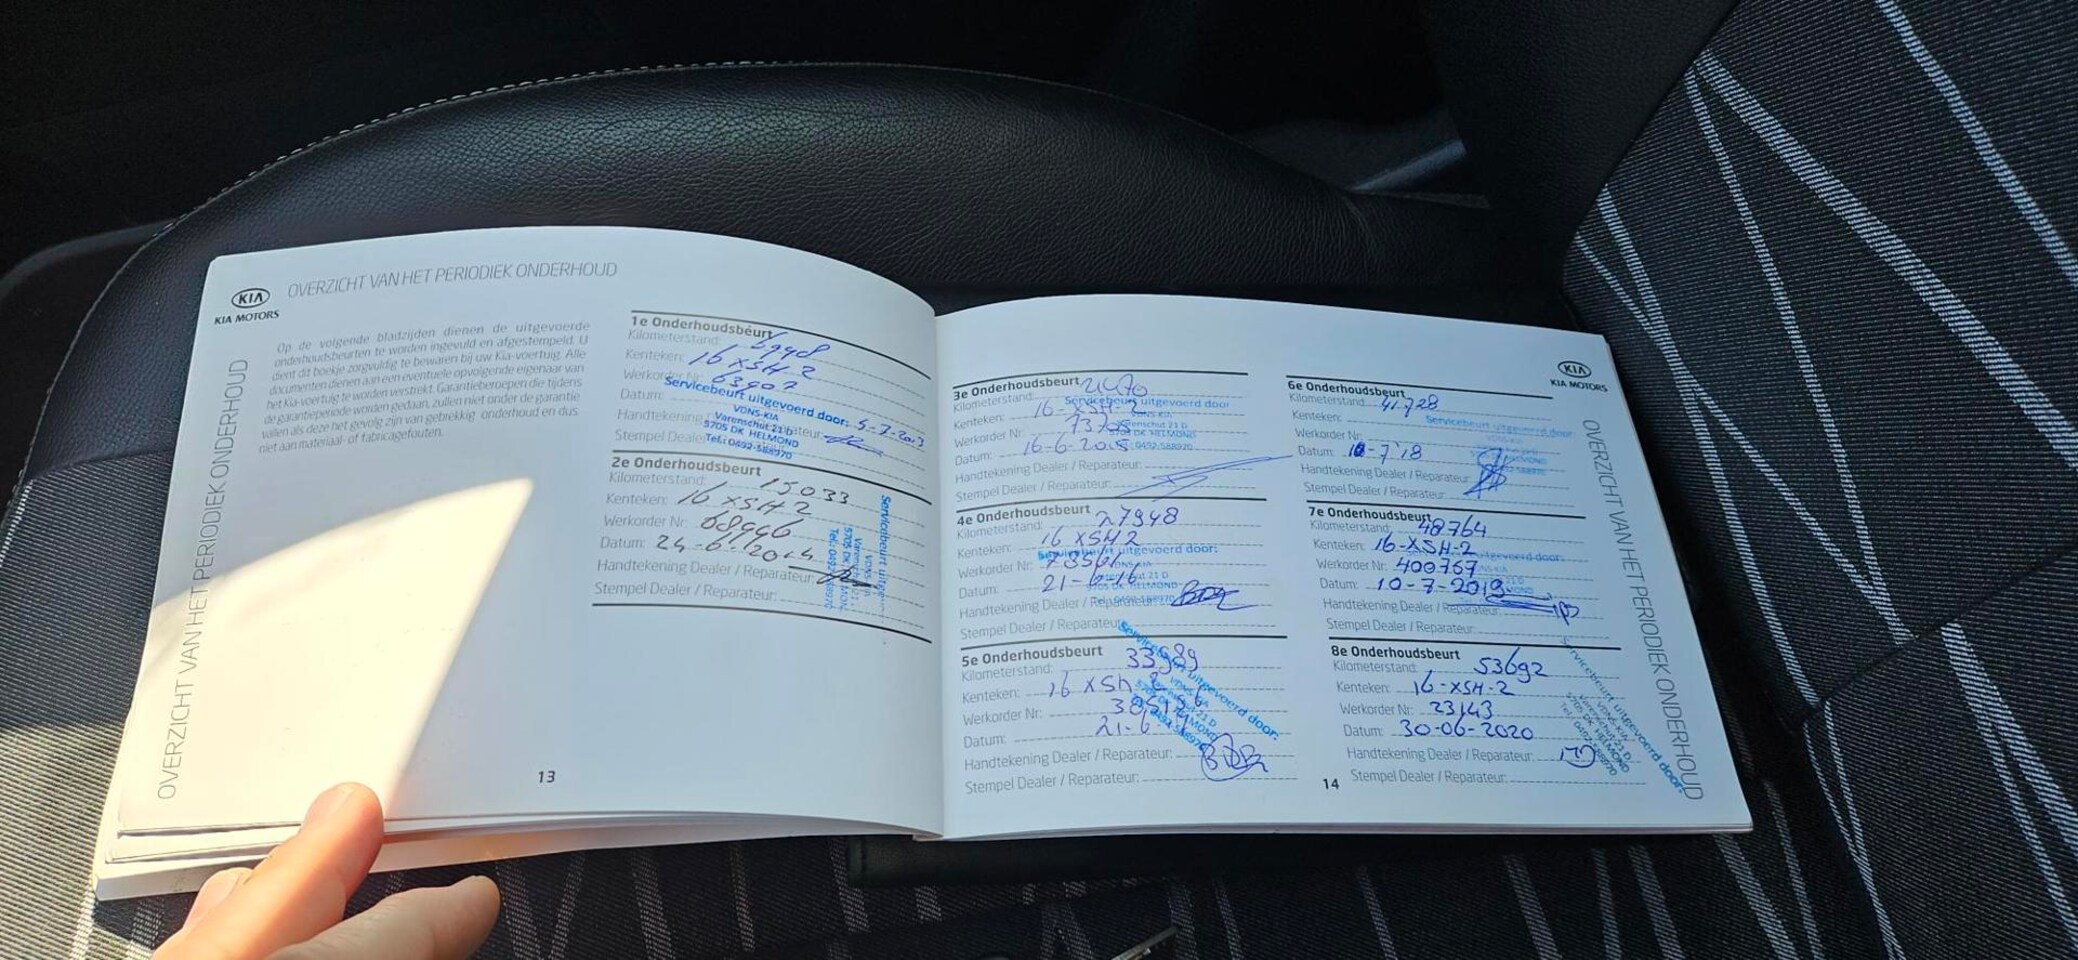 KIA
KIA MOTORS
OVERZICHT VAN HET PERIODIEK ONDERHOUD
OVERZICHT VAN HET PERIODIEK ONDERHOUD
Op de volgende bladzijden dienen de uitgevoerde
onderhoudsbeurten te worden ingevuld en afgestempeld. U
dient dit boekje zorgvuldig te bewaren bij uw Kia-voertuig. Alle
documenten dienen aan een eventuele opvolgende eigenaar van
het Kia-voertuig te worden verstrekt. Garantieberoepen die tijdens
de garantieperiode worden gedaan, zullen niet onder de garantie
vallen als deze het gevolg zijn van gebrekkig onderhoud en dus
niet aan materiaal- of fabricagefouten.
1e Onderhoudsbeurt
Kilometerstand:
Kenteken: 16 XSH 2
Werkorder Nr: 63907
Datum: 5-7-2013
Handtekening
Stempel Dealer
Servicebeurt uitgevoerd door:
VDNS-KIA
Varenschut 21 D
5705 DK HELMOND
Tel.: 0492-588970
2e Onderhoudsbeurt
Kilometerstand: 15033
Kenteken: 16 XSH 2
Werkorder Nr: 68946
Datum: 24-6-2014
Handtekening Dealer / Reparateur:
Stempel Dealer / Reparateur:
13
3e Onderhoudsbeurt
Kilometerstand: 21470
Kenteken: 16-XSH-2
Werkorder Nr:
Datum: 16-6-2015
Handtekening Dealer / Reparateur:
Stempel Dealer / Reparateur:
Servicebeurt uitgevoerd door:
4e Onderhoudsbeurt
Kilometerstand: 27948
Kenteken: 16 XSH 2
Werkorder Nr:
Datum: 21-6-16
Handtekening Dealer / Reparateur:
Stempel Dealer / Reparateur:
5e Onderhoudsbeurt
Kilometerstand: 33989
Kenteken: 16 XSH 2
Werkorder Nr:
Datum: 21-6
Handtekening Dealer / Reparateur:
Stempel Dealer / Reparateur:
Servicebeurt uitgevoerd door:
KIA
KIA MOTORS
OVERZICHT VAN HET PERIODIEK ONDERHOUD
6e Onderhoudsbeurt
Kilometerstand: 41728
Kenteken:
Werkorder Nr:
Datum: 10-7'18
Handtekening Dealer / Reparateur:
Stempel Dealer / Reparateur:
Servicebeurt uitgevoerd door:
7e Onderhoudsbeurt
Kilometerstand: 48764
Kenteken: 16-XSH-2
Werkorder Nr: 400767
Datum: 10-7-2019
Handtekening Dealer / Reparateur:
Stempel Dealer / Reparateur:
8e Onderhoudsbeurt
Kilometerstand: 53692
Kenteken: 16-XSH-2
Werkorder Nr: 23143
Datum: 30-06-2020
Handtekening Dealer / Reparateur:
Stempel Dealer / Reparateur:
Servicebeurt uitgevoerd door:
VDNS-KIA
Varenschut 21 D
5705 DK HELMOND
Tel.: 0492-588970
14